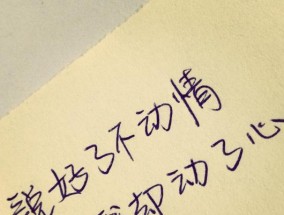 说好了不动情
却动了心